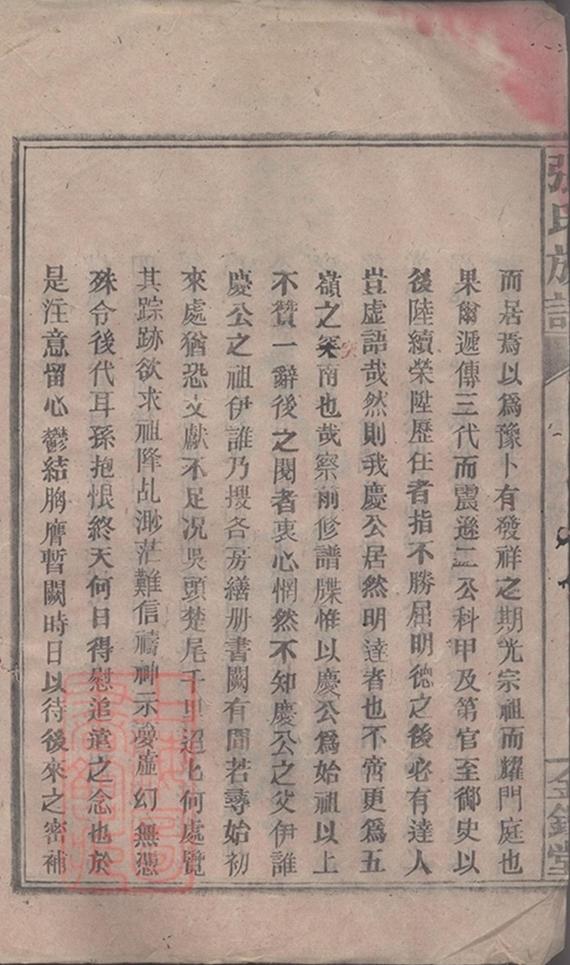 張氏族譜
金鑑堂
而居焉以為豫卜有發祥之期光宗祖而耀門庭也
果爾遞傳三代而震遜二公科甲及第官至御史以
後陸續榮陞歷任者指不勝屈明德之後必有達人
豈虛語哉然則我慶公居然明達者也不啻更為五
嶺之突南也哉察前修譜牒惟以慶公為始祖以上
不贊一辭後之閱者衷心惘然不知慶公之父伊誰
慶公之祖伊誰乃搜各房繕册書闕有間若尋始初
來處猶恐文獻不足况吳頭楚尾千里迢化何處覽
其踪跡欲求祖降乩渺茫難信禱神示夢虛幻無憑
殊令後代耳孫抱恨終天何日得慰追遠之念也於
是注意留心鬱結胸膺暫闕時日以待後來之密補